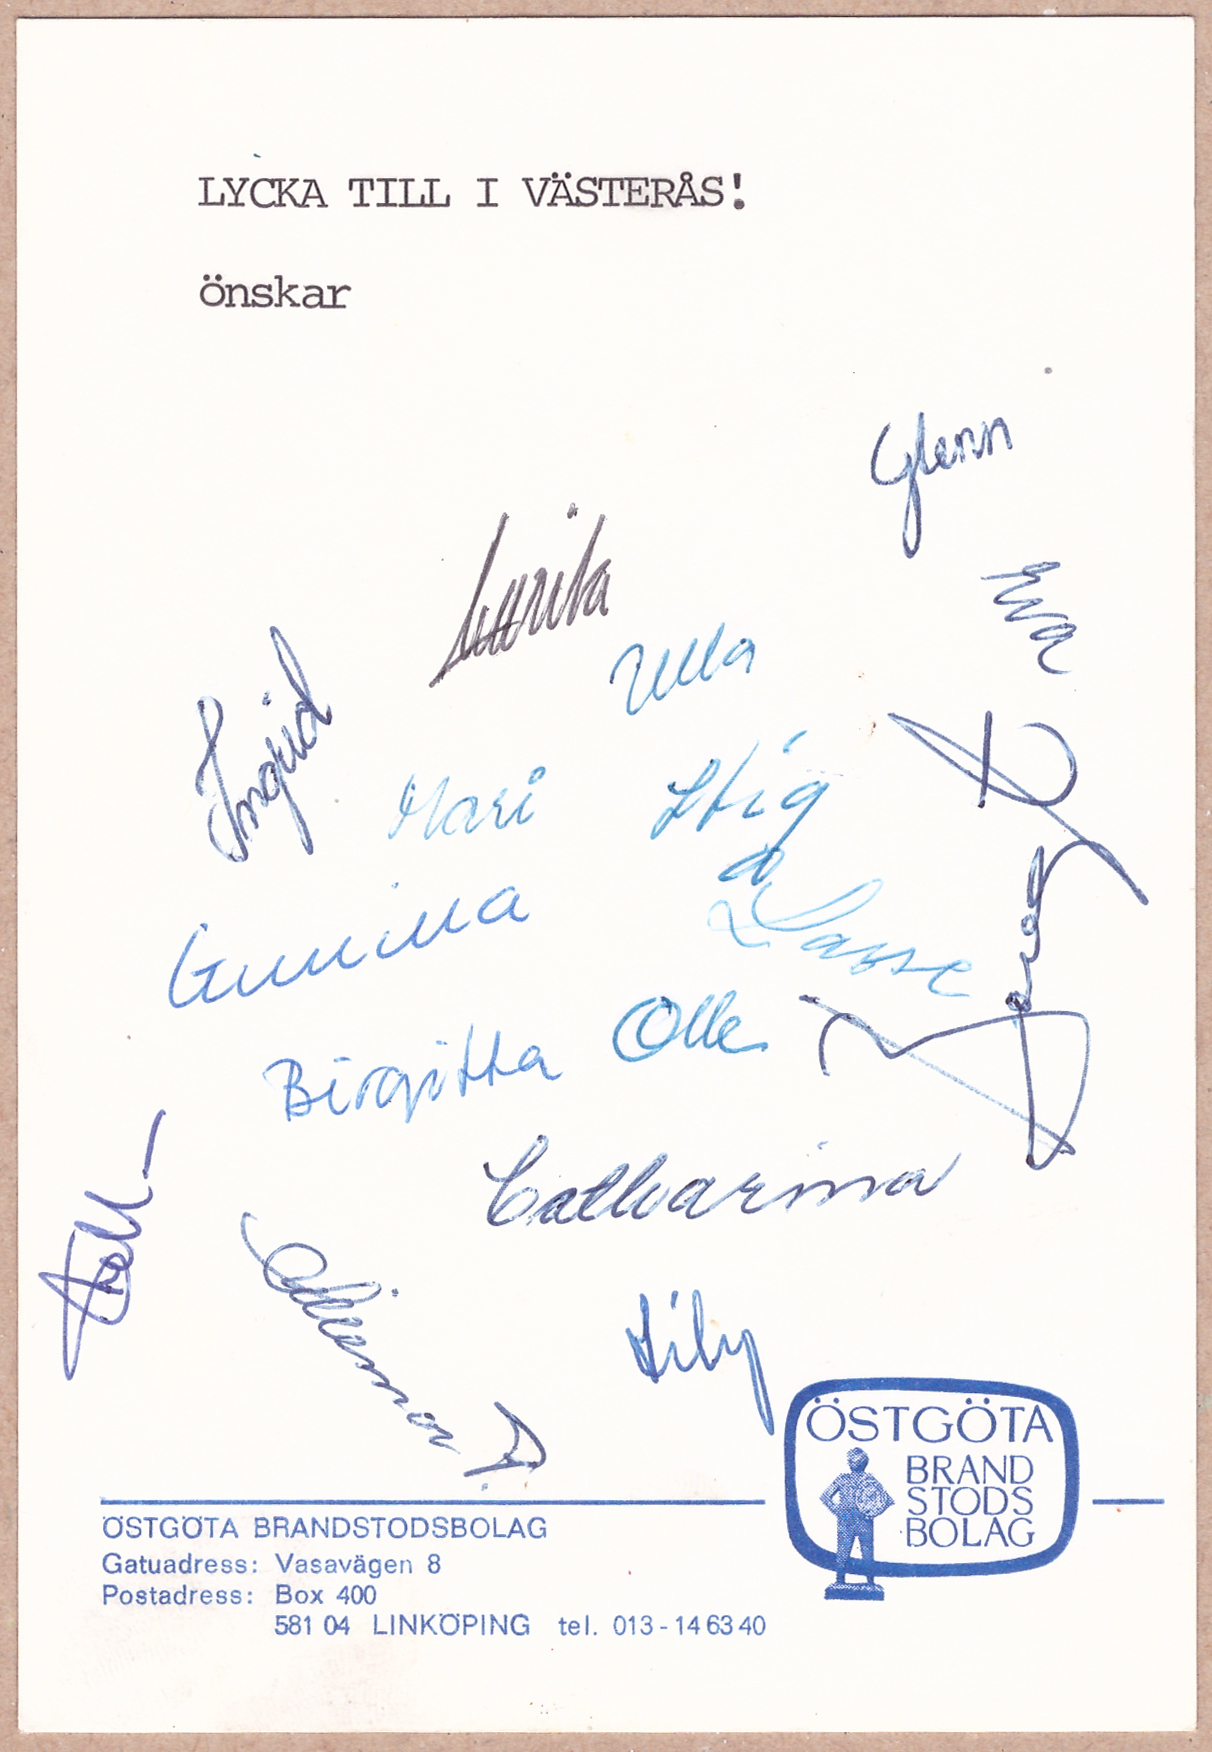 LYCKA TILL I VÄSTERÅS!
önskar
Glenn
Eva
Ulla
Ingrid
Mari
Stig
Gunilla
Lasse
Olle
Birgitta
Catharina
Lily
ÖSTGÖTA
BRAND
STODS
BOLAG
ÖSTGÖTA BRANDSTODSBOLAG
Gatuadress: Vasavägen 8
Postadress: Box 400
581 04 LINKÖPING tel. 013-14 63 40